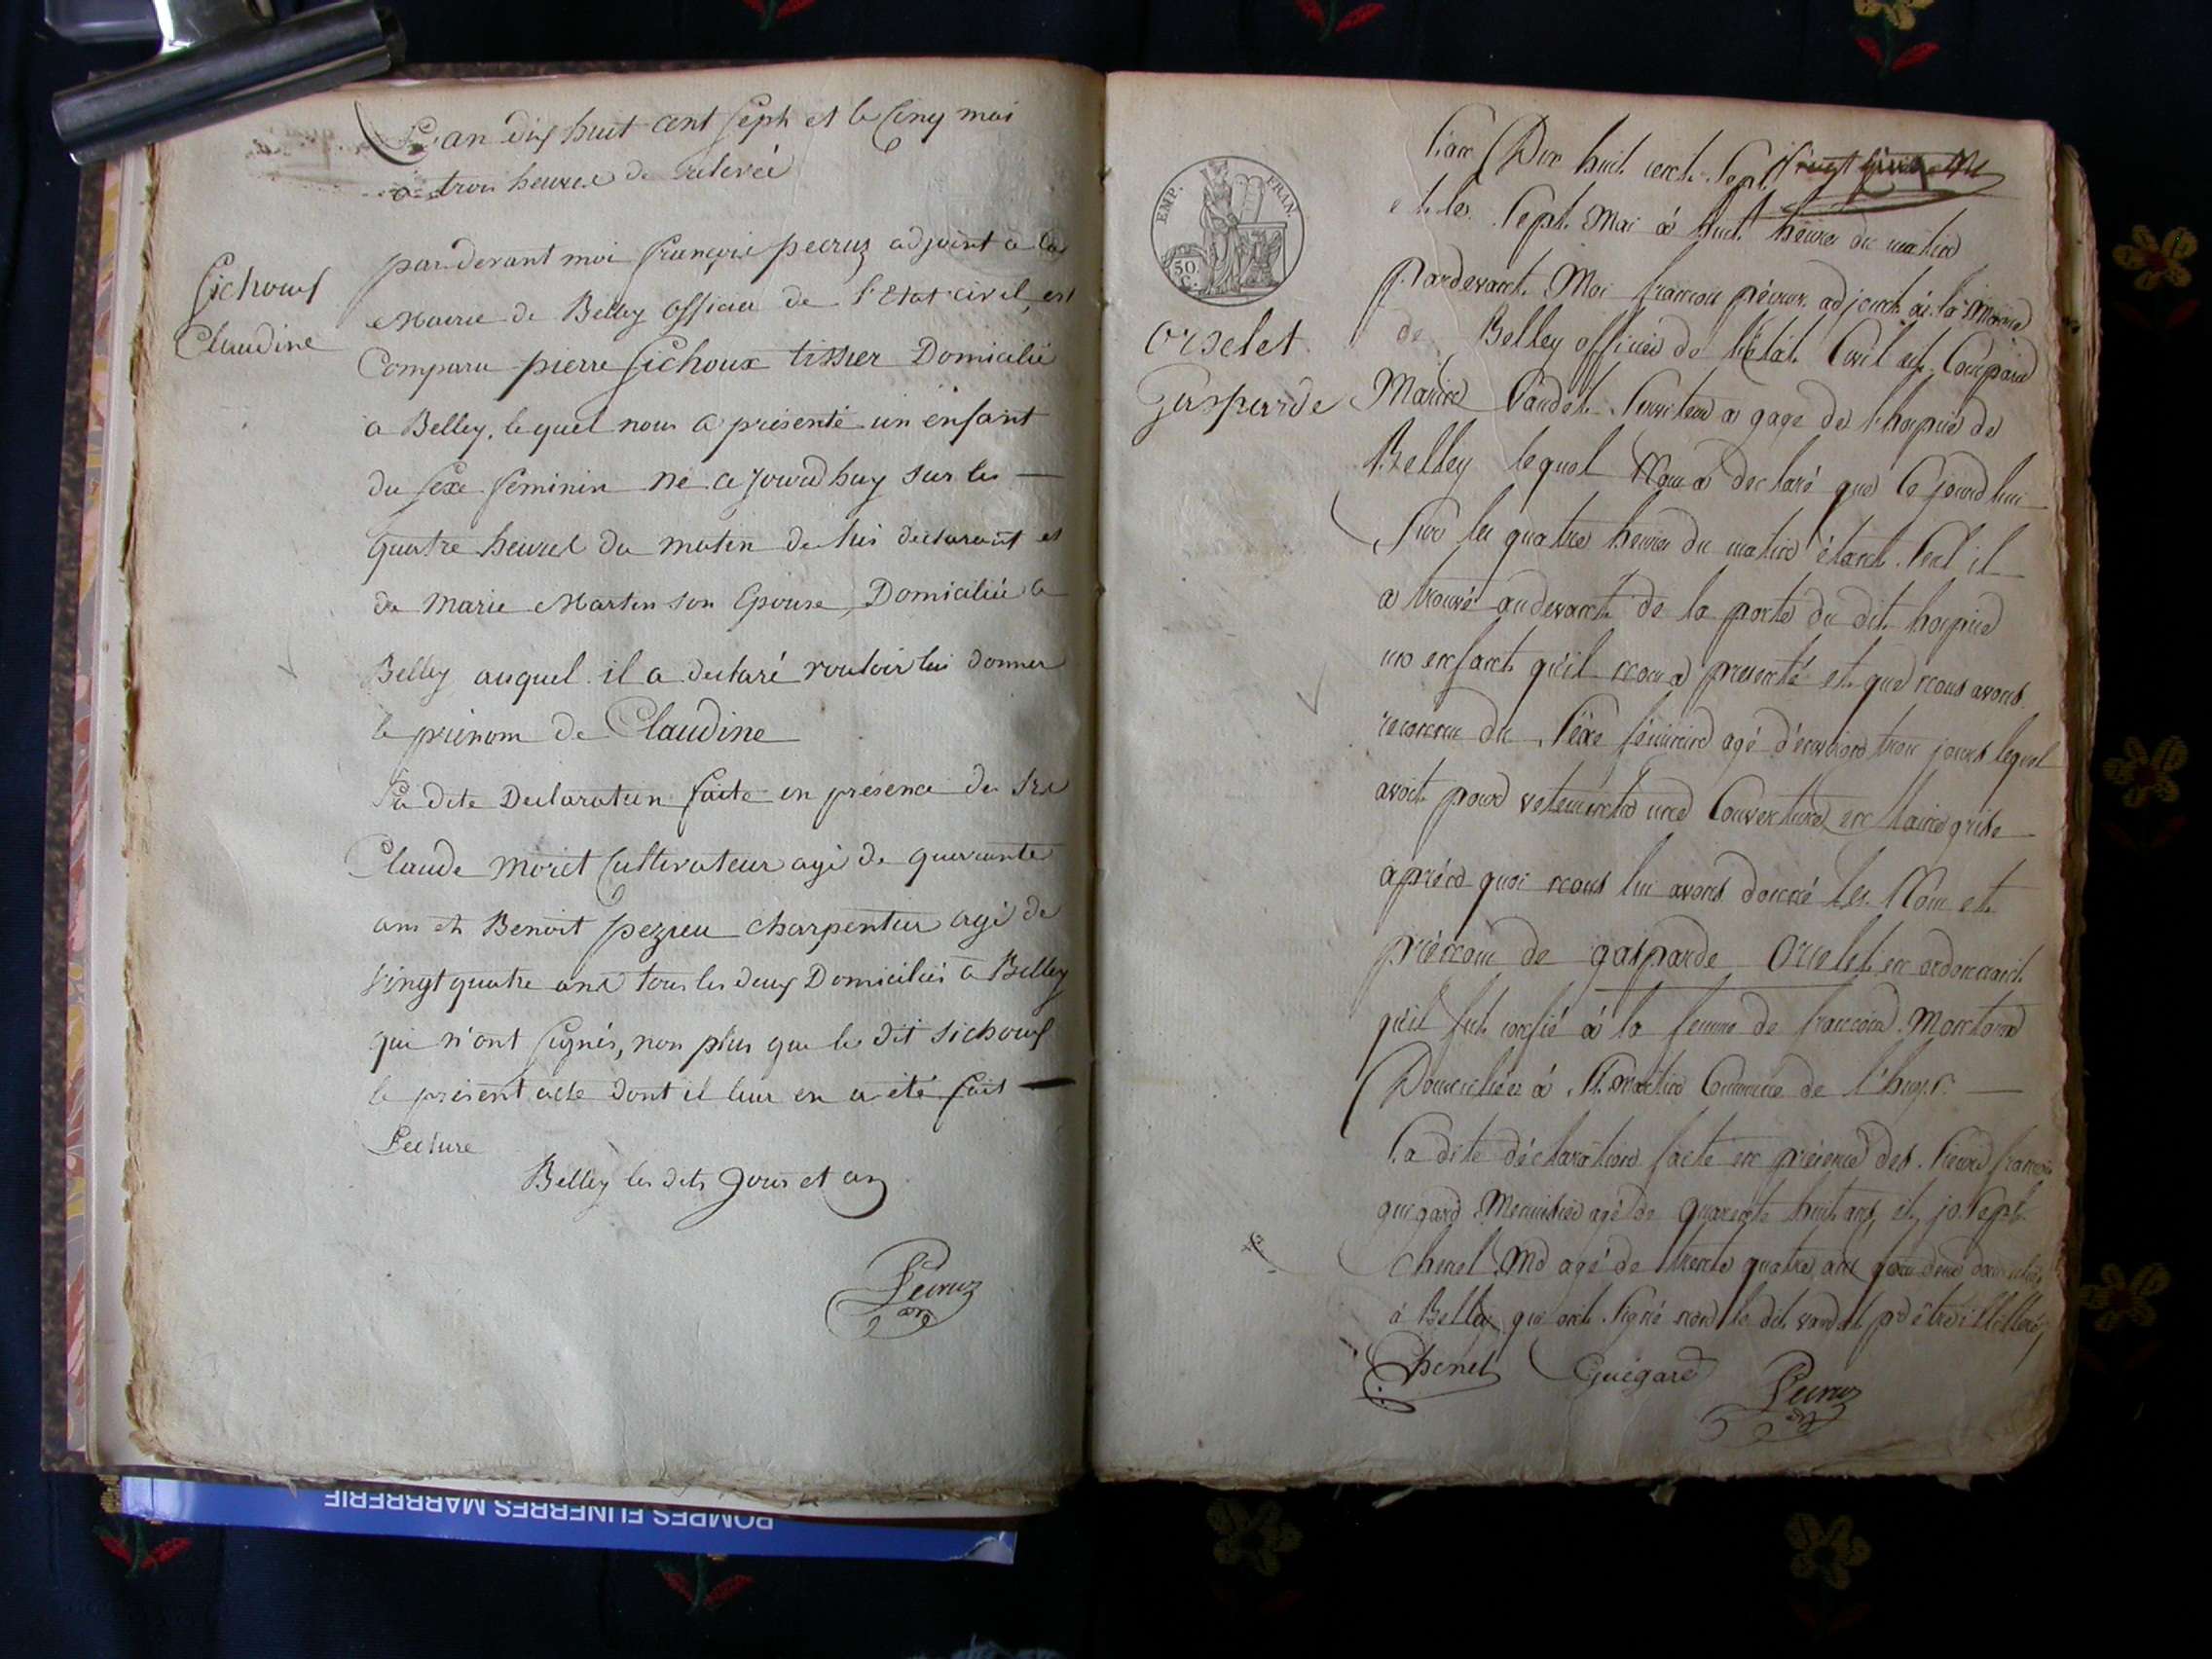 L'an dix huit cent sept et le cinq mai
à trois heures de relevée
Sichoux
Claudine
pardevant moi françois pecruz adjoint a la
Mairie de Belley officier de l'Etat civil, est
Comparu pierre Sichoux tissier Domicilié
a Belley, lequel nous a présenté un enfant
du sexe feminin né ce jourdhuy sur les
quatre heures du matin de lui declarant et
de Marie Martin son Epouse, Domiciliée a
Belley auquel il a declaré vouloir lui donner
le prénom de Claudine
La dite Declaration faite en présence de Srs
Claude Moret Cultivateur agé de quarante
ans et Benoit pezieu charpentier agé de
vingt quatre ans tous les deux Domiciliés à Belley
qui n'ont signés, non plus que le dit Sichoux
le présent acte dont il leur en a été fait
Lecture
Belley les dits jour et an
Pecruz
EMP. FRAN.
50. C.
Orselet
Gasparde
L'an Dix huit cent Sept
et le Sept Mai à huit heures du matin
Pardevant Moi françois pécruz adjoint à la Mairie
de Belley officier de l'état Civil est Comparu
Serviteur a gage de l'hospice de
Belley lequel Nous a declaré que Ce jourdhui
Sur les quatre heures du matin étant Seul il
a trouvé audevant de la porte du dit hospice
un enfant qu'il nous a presenté et que nous avons
reconnu du Sexe féminin agé d'environ trois jours lequel
avoit pour vetements une Couverture en laine grise
après quoi nous lui avons donné les Nom et
prénom de gasparde Orselet en ordonnant
qu'il fut confié à la femme de françois
Domiciliée à St. martin Commune de
La dite déclaration faite en présence des Sieurs françois
guégard Menuisier agé de quarante huit ans et joseph
chenel Md agé de trente quatre ans tous deux domiciliés
à Belley qui ont Signé non le dit vandel pr être illiteré
Chenel Guégard Pecruz
POMPES FUNEBRES MARBRERIE